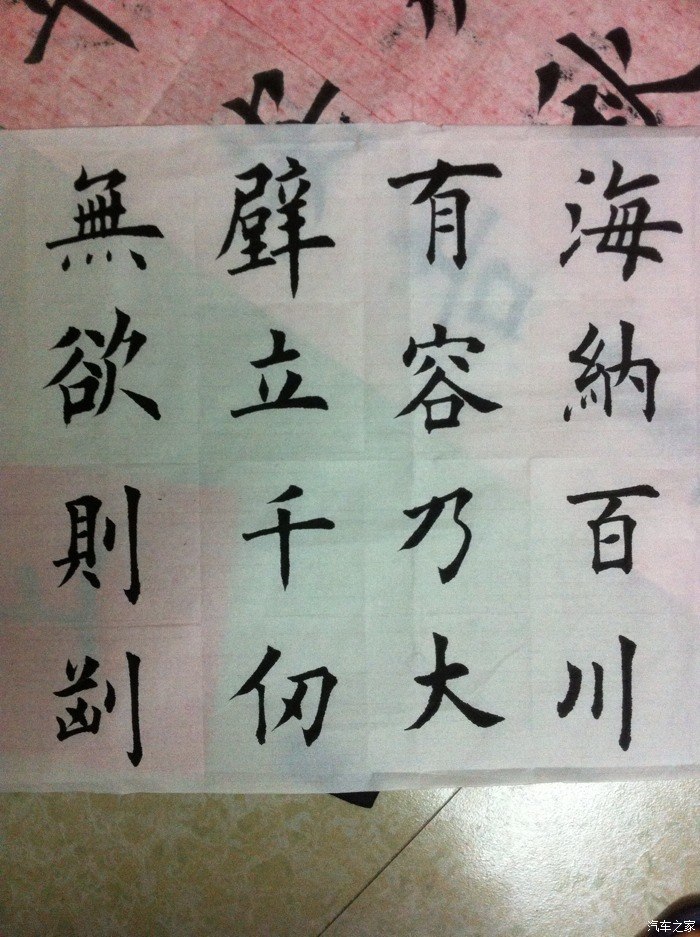 海納百川
有容乃大
壁立千仞
無欲則剛
汽车之家